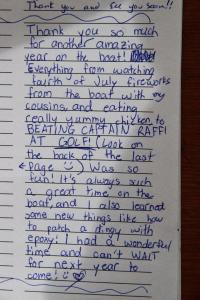 Thank you and see you soon!!
Thank you so much
for another amazing
year on the boat!
Everything from watching
of July fireworks
from the boat with my
cousins, and eating
really yummy chicken to
BEATING CAPTAIN RAFFI
AT GOLF! (Look on
the back of the last
page :)) Was so
fun! It's always such
a great time on the
boat, and I also learned
some new things like how
to patch a dingy with
epoxy! I had a wonderful
time and can't WAIT
for next year to
come! :)